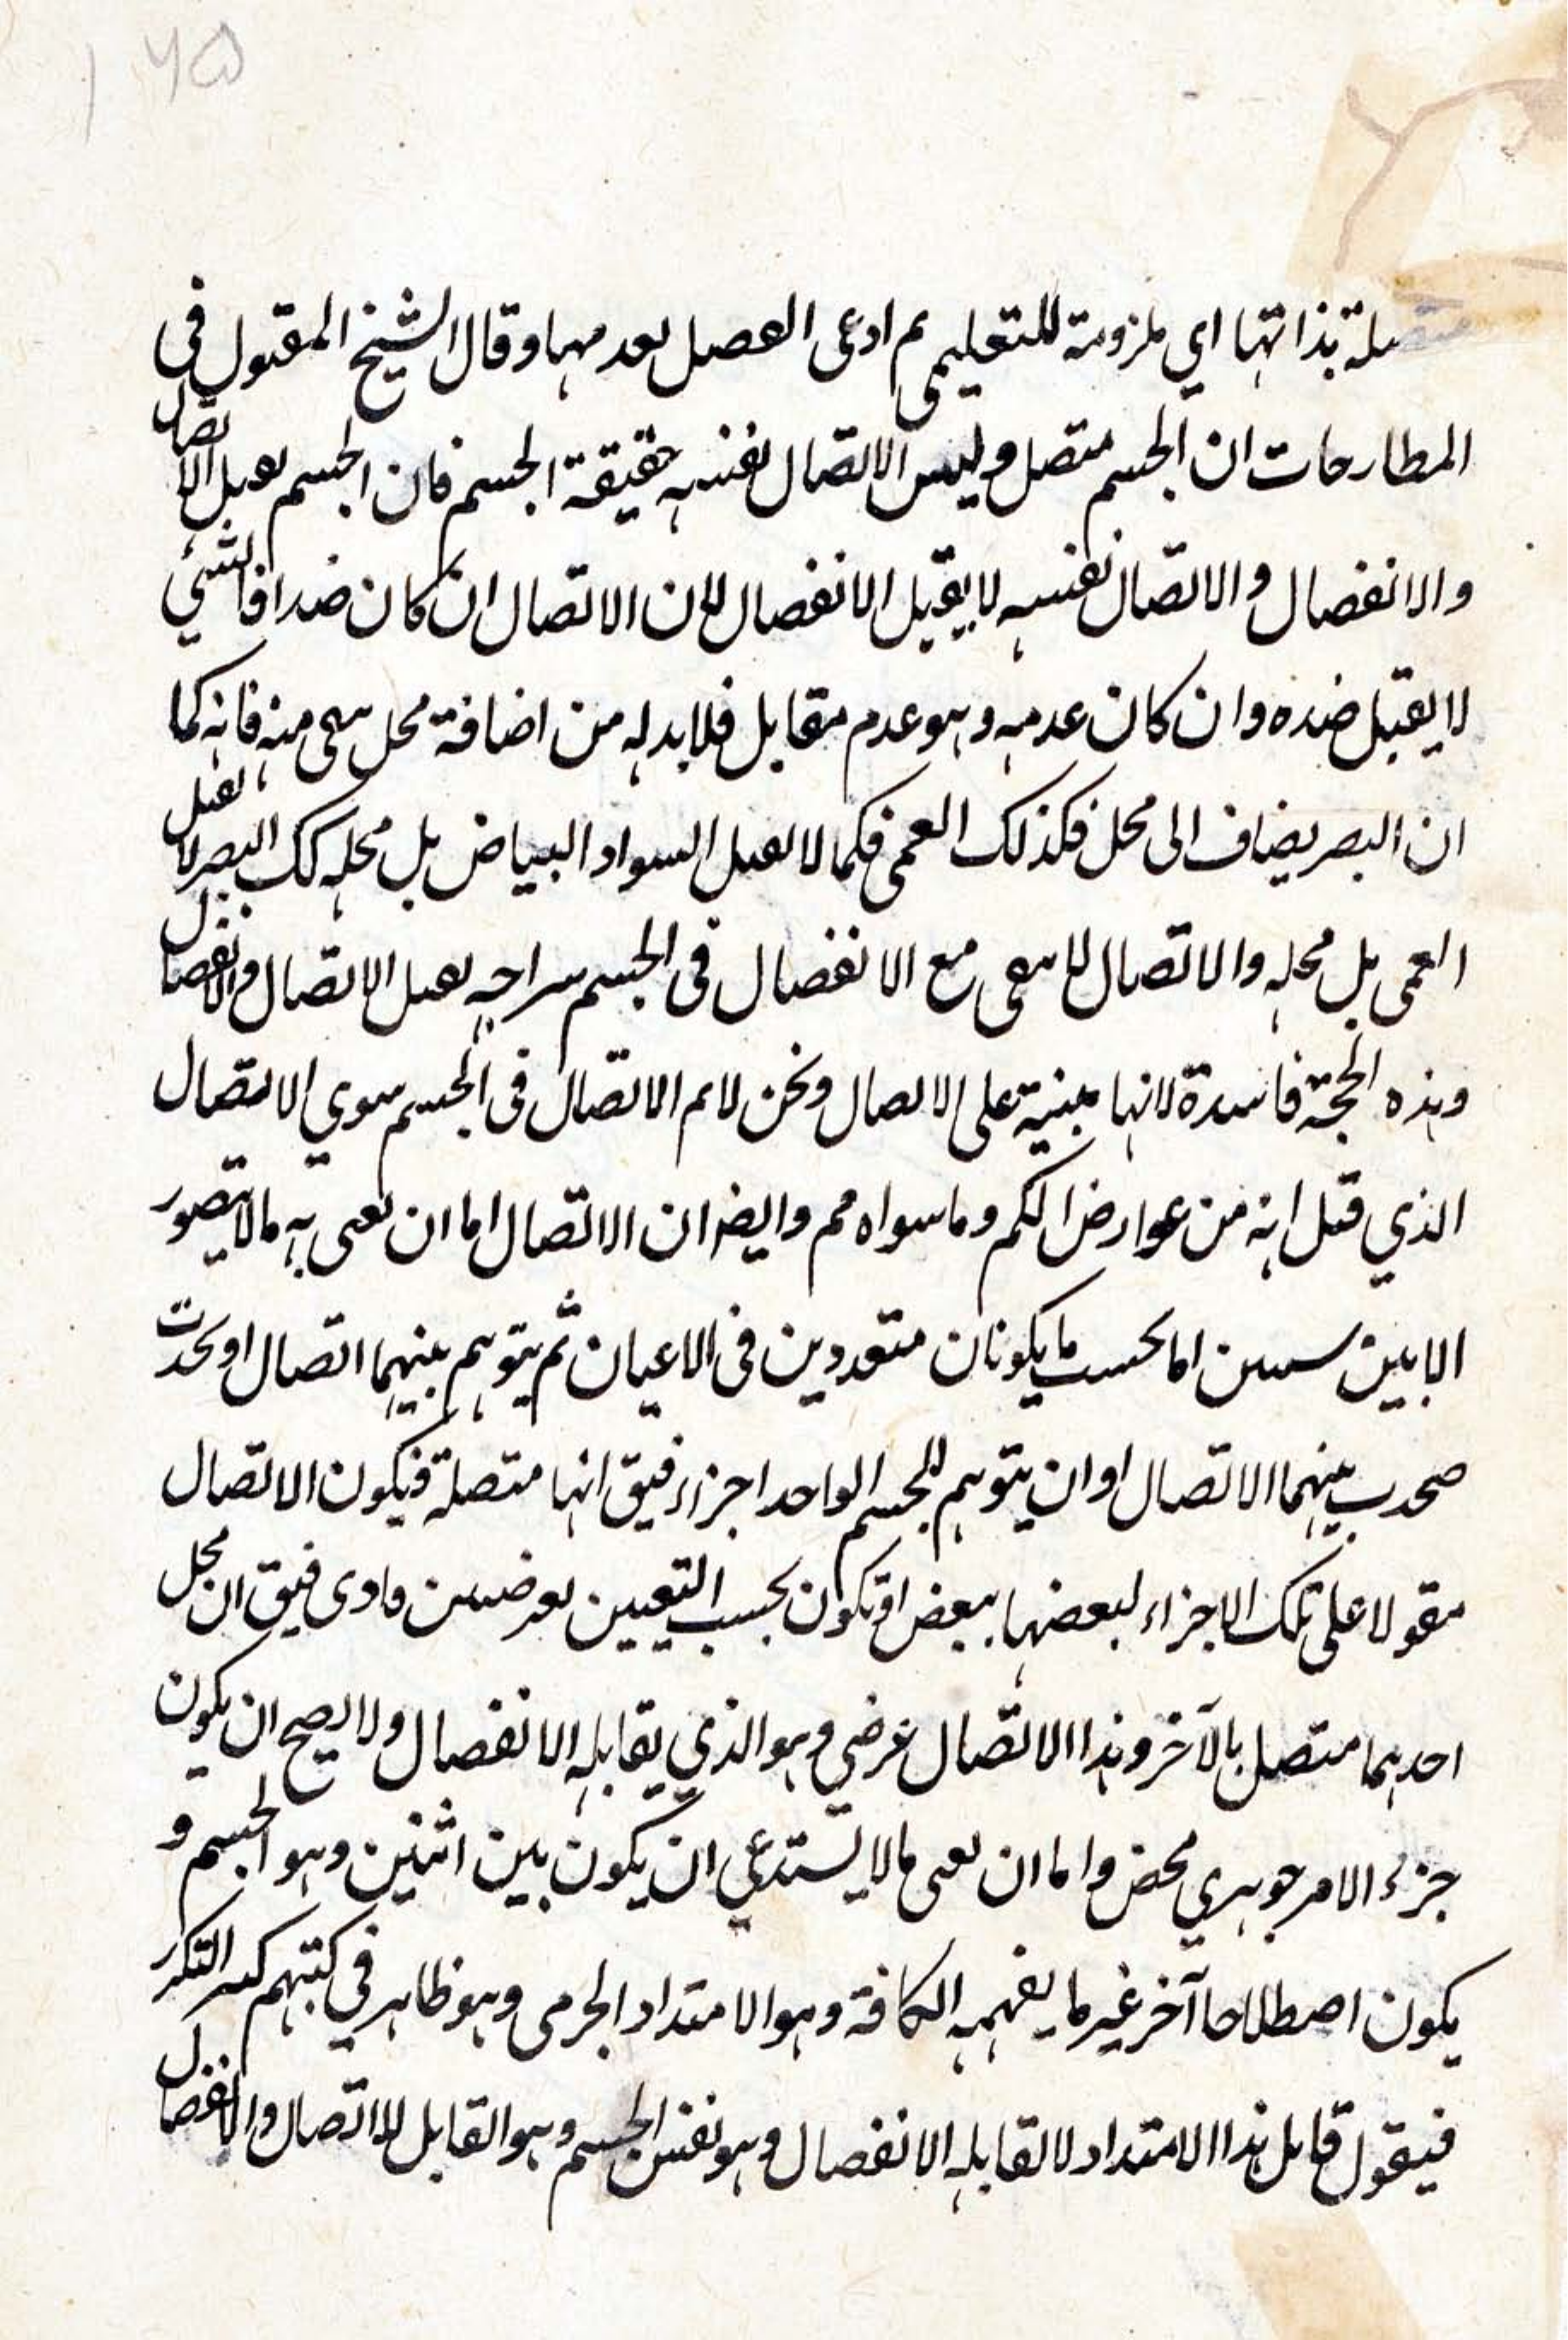 ۱۶۵
متصلة بذاتها اي ملزومة للتعليمى ثم ادعى الفصل بعدمها وقال الشيخ المقتول فى
المطارحات ان الجسم متصل وليس الاتصال نفسه حقيقة الجسم فان الجسم يقبل الاتصال
والانفصال والاتصال نفسه لا يقبل الانفصال لان الاتصال ان كان ضدا فالشيئ
لا يقبل ضده وان كان عدمه وهو عدم مقابل فلا بد له من اضافة محل منه فانه كما
ان البصر يضاف الى محل فكذلك العمى فكما لا يقبل السواد البياض بل محله كك البصر لا يقبل
العمى بل محله والاتصال لا يبقى مع الانفصال فى الجسم يقبل الاتصال والانفصال
وهذه الحجة فاسدة لانها مبنية على الاتصال ونحن لانم الاتصال فى الجسم سوي الاتصال
الذي قيل انه من عوارض الكم وما سواه مم وايضا ان الاتصال اما ان يعنى به ما لا يتصور
الا بين اما بحسب ما يكونان متعددين فى الاعيان ثم يتوهم بينهما اتصال او يحدث
بينهما الاتصال او ان يتوهم للجسم الواحد اجزاء فيق انها متصلة فيكون الاتصال
مقولا على تلك الاجزاء لبعضها ببعض او تكون بحسب التعيين فيق ان محل
احدهما متصل بالآخر وهذا الاتصال عرضي وهو الذي يقابله الانفصال ولا يصح ان يكون
جزء الامر جوهري محض واما ان يعنى ما لا يستدعي ان يكون بين اثنين وهو الجسم و
يكون اصطلاحا آخر غير ما يفهمه الكافة وهو الامتداد الجرمى وهو ظاهر في كتبهم
فيقول قايل هذا الامتداد لا يقابله الانفصال وهو نفس الجسم وهو القابل للاتصال والانفصال